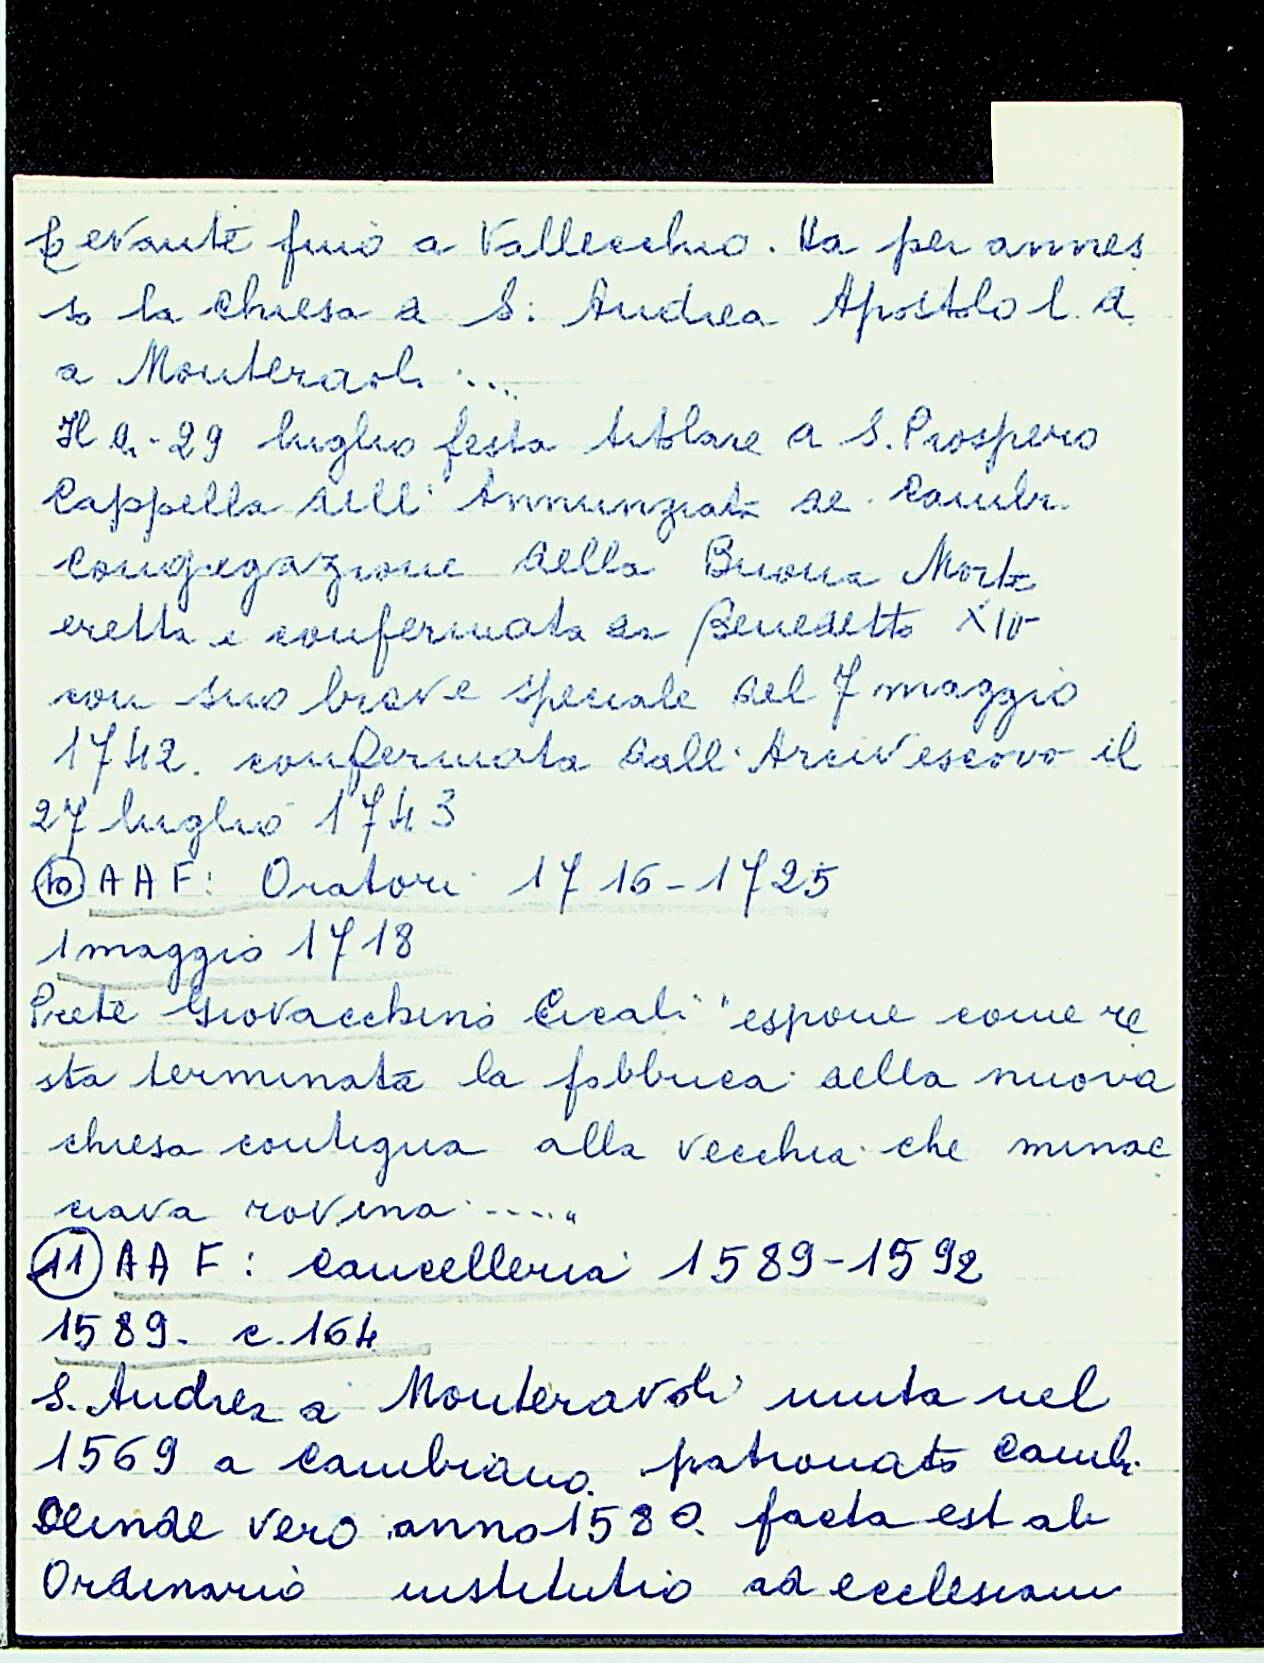 Levante fino a Vallecchio. Ha per annes
so la chiesa a S: Andrea Apostolo l. d.
a Monteraoli ...
Il dì 29 luglio festa titolare a S. Prospero
Cappella dell' Annunziata de Cambi.
Congregazione della Buona Morte
eretta e confermata da Benedetto XIV
con suo breve speciale del 7 maggio
1742. confermata dall'Arcivescovo il
27 luglio 1743
(10) AAF: Oratori 1716-1725
1 maggio 1718
Prete Giovacchino Cicali "espone come re
sta terminata la fabbrica della nuova
chiesa contigua alla vecchia che minac
ciava rovina ....."
(11) AAF: Cancelleria 1589-1592
1589. c. 164
S. Andrea a Monteravoli unita nel
1569 a Cambiano. patronato Cambi.
Deinde vero anno 1580. facta est ab
Ordinario institutio ad ecclesiam